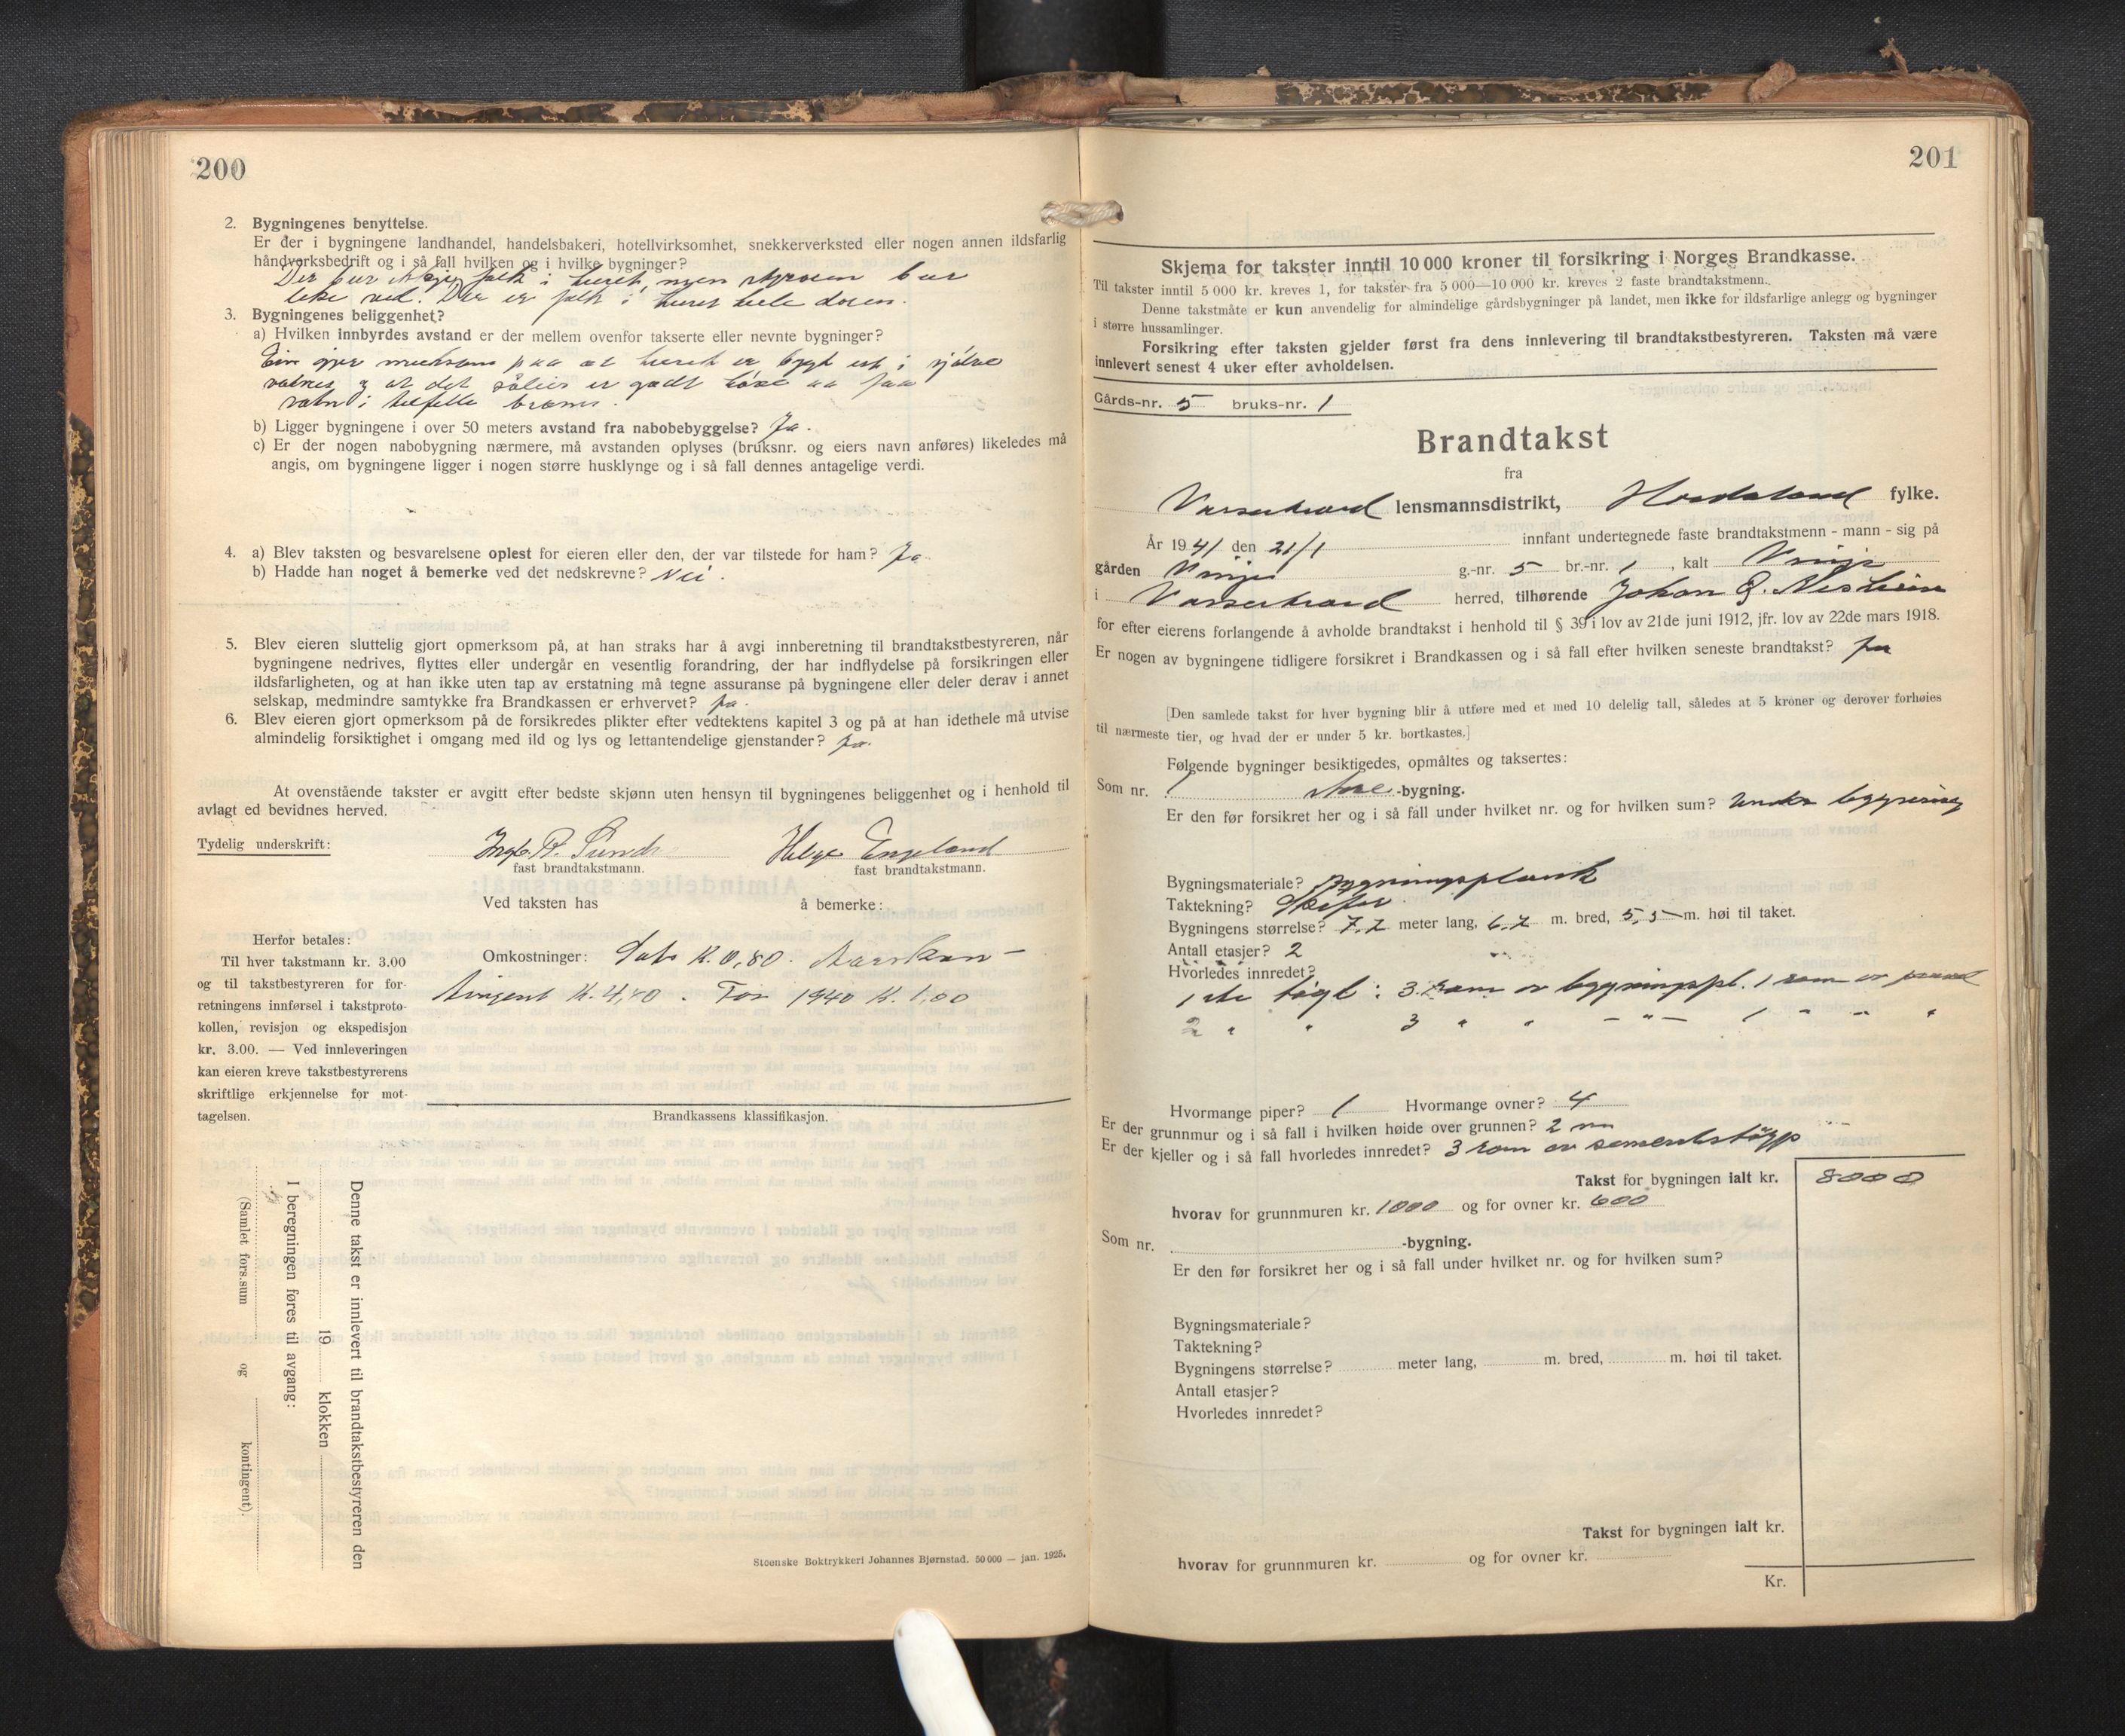 200
2. Bygningenes benyttelse.
Er der i bygningene landhandel, handelsbakeri, hotellvirksomhet, snekkerverksted eller nogen annen ildsfarlig
håndverksbedrift og i så fall hvilken og i hvilke bygninger?
Der bur folk i huset, men bur
like ved. Der er folk i huset hele
3. Bygningenes beliggenhet?
a) Hvilken innbyrdes avstand er der mellem ovenfor takserte eller nevnte bygninger?
Ein gjer merksam paa at huset er bygt ut i sjølve
vatnet og at det såleis er godt høve aa faa
vatn i tilfelle brann.
b) Ligger bygningene i over 50 meters avstand fra nabobebyggelse? Ja.
c) Er der nogen nabobygning nærmere, må avstanden oplyses (bruksnr. og eiers navn anføres) likeledes må
angis, om bygningene ligger i nogen større husklynge og i så fall dennes antagelige verdi.
4. a) Blev taksten og besvarelsene oplest for eieren eller den, der var tilstede for ham? Ja
b) Hadde han noget å bemerke ved det nedskrevne? Nei.
5. Blev eieren sluttelig gjort opmerksom på, at han straks har å avgi innberetning til brandtakstbestyreren, når
bygningene nedrives, flyttes eller undergår en vesentlig forandring, der har indflydelse på forsikringen eller
ildsfarligheten, og at han ikke uten tap av erstatning må tegne assuranse på bygningene eller deler derav i annet
selskap, medmindre samtykke fra Brandkassen er erhvervet? Ja.
6. Blev eieren gjort opmerksom på de forsikredes plikter efter vedtektens kapitel 3 og på at han idethele må utvise
almindelig forsiktighet i omgang med ild og lys og lettantendelige gjenstander? Ja.
At ovenstående takster er avgitt efter bedste skjønn uten hensyn til bygningenes beliggenhet og i henhold til
avlagt ed bevidnes herved.
Tydelig underskrift: Helge Engeland
fast brandtakstmann. fast brandtakstmann.
Ved taksten has å bemerke:
Herfor betales:
Til hver takstmann kr. 3.00
og til takstbestyreren for for-
retningens innførsel i takstproto-
kollen, revisjon og ekspedisjon
kr. 3.00. — Ved innleveringen
kan eieren kreve takstbestyrerens
skriftlige erkjennelse for mot-
tagelsen.
Omkostninger: Sats K. 0,80. Aarskon-
tingent K. 4,80. For 1940 K. 1,00
Brandkassens klassifikasjon.
Denne takst er innlevert til brandtakstbestyreren den
19 klokken
I beregningen føres til avgang:
(Samlet fors.sum og kontingent).
Steenske Boktrykkeri Johannes Bjørnstad. 50 000 — jan. 1925.
201
Skjema for takster inntil 10 000 kroner til forsikring i Norges Brandkasse.
Til takster inntil 5 000 kr. kreves 1, for takster fra 5 000—10 000 kr. kreves 2 faste brandtakstmenn.
Denne takstmåte er kun anvendelig for almindelige gårdsbygninger på landet, men ikke for ildsfarlige anlegg og bygninger
i større hussamlinger.
Forsikring efter taksten gjelder først fra dens innlevering til brandtakstbestyreren. Taksten må være
innlevert senest 4 uker efter avholdelsen.
Gårds-nr. 5 bruks-nr. 1
Brandtakst
fra
Vossestrand lensmannsdistrikt, Hordaland fylke.
År 1941 den 21/1 innfant undertegnede faste brandtakstmenn - mann - sig på
gården Vinje g.-nr. 5 br.-nr. 1, kalt Vinje
i Vossestrand herred, tilhørende Johan
for efter eierens forlangende å avholde brandtakst i henhold til § 39 i lov av 21de juni 1912, jfr. lov av 22de mars 1918.
Er nogen av bygningene tidligere forsikret i Brandkassen og i så fall efter hvilken seneste brandtakst? Ja
[Den samlede takst for hver bygning blir å utføre med et med 10 delelig tall, således at 5 kroner og derover forhøies
til nærmeste tier, og hvad der er under 5 kr. bortkastes.]
Følgende bygninger besiktigedes, opmåltes og taksertes:
Som nr. 1 -bygning.
Er den før forsikret her og i så fall under hvilket nr. og for hvilken sum? under bygging
Bygningsmateriale? bygningsplank
Taktekning? Skifer
Bygningens størrelse? 7.2 meter lang, 6.2 m. bred, 5,5 m. høi til taket.
Antall etasjer? 2
Hvorledes innredet?
1ste høgd: 3 rom av bygningspl. 1 rom av panel
2 " " 3 " " — " — 1 " " "
Hvormange piper? 1 Hvormange ovner? 4
Er der grunnmur og i så fall i hvilken høide over grunnen? 2 m
Er der kjeller og i så fall hvorledes innredet? 3 rom av sementstøyp
Takst for bygningen ialt kr. 8000
hvorav for grunnmuren kr. 1000 og for ovner kr. 600
Som nr. -bygning.
Er den før forsikret her og i så fall under hvilket nr. og for hvilken sum?
Bygningsmateriale?
Taktekning?
Bygningens størrelse? meter lang, m. bred, m. høi til taket.
Antall etasjer?
Hvorledes innredet?
Takst for bygningen ialt kr.
hvorav for grunnmuren kr. og for ovner kr.
Kr.